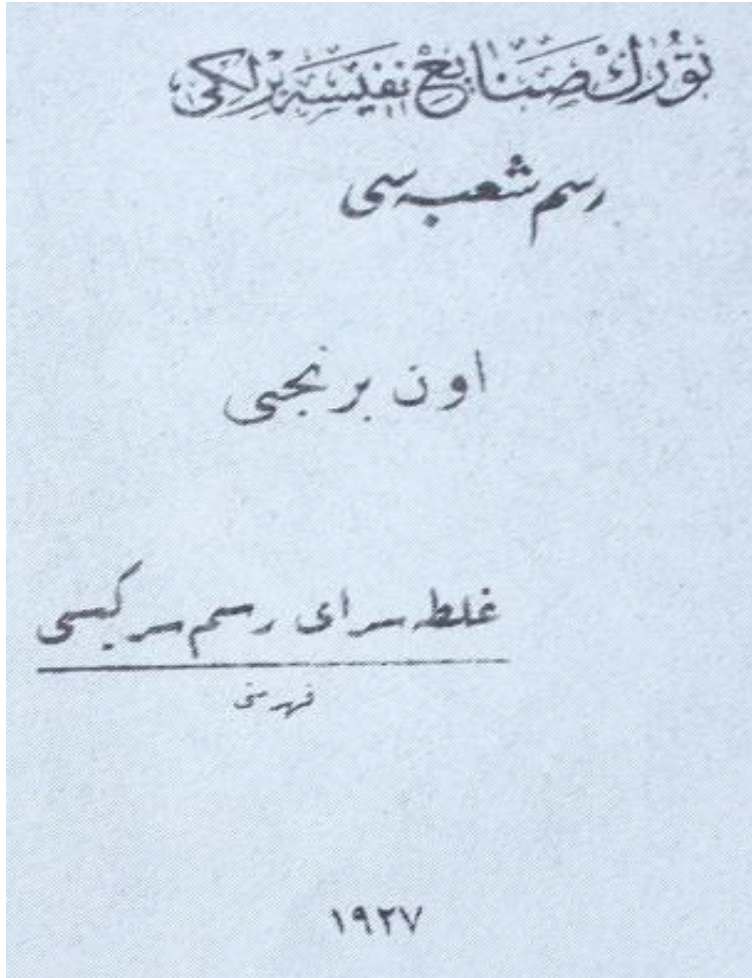 تورك صنايع نفيسه برلكى
رسم شعبه‌سى
اون برنجى
غلطه سراى رسم سركيسى
فهرستى
١٩٢٧